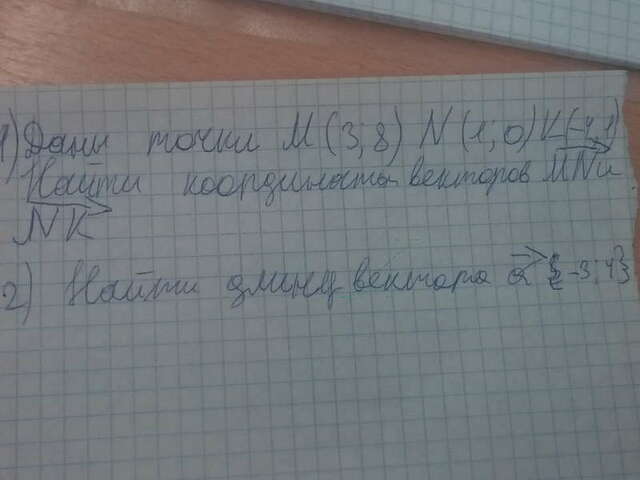 1) Дани точки M(3;8) N(1;0) K(-4;1)
Найти координаты векторов MN и
NK
2) Найти длину вектора a {-3;4}